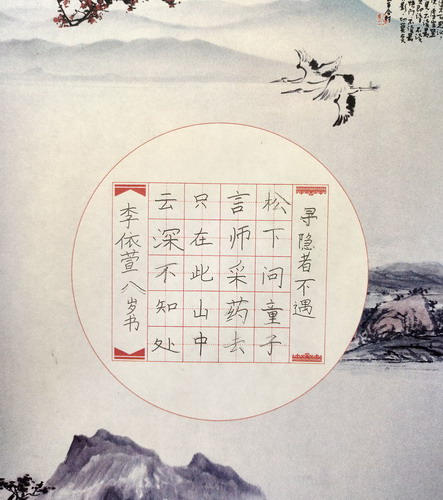 寻隐者不遇
松下问童子
言师采药去
只在此山中
云深不知处
李依萱八岁书